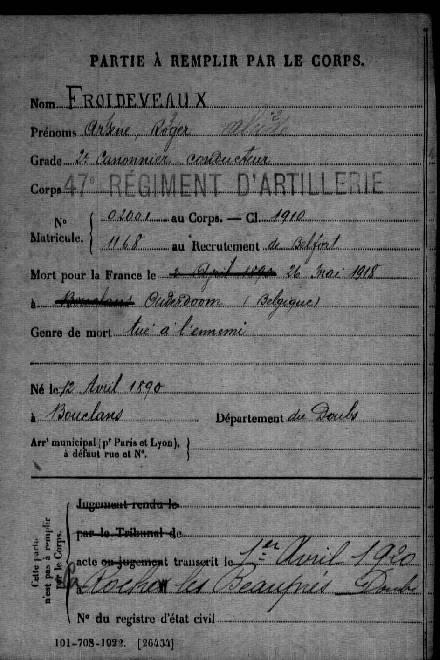 PARTIE À REMPLIR PAR LE CORPS.
Nom FROIDEVEAUX
Prénoms Arsène, Roger
Grade 2e Canonnier conducteur
Corps 47e RÉGIMENT D'ARTILLERIE
No Matricule. { 02001 au Corps. — Cl. 1910
1168 au Recrutement de Belfort
Mort pour la France le 2 April 1890 26 Mai 1918
à Bouclans Ouderdoom (Belgique)
Genre de mort tué à l'ennemi
Né le 12 Avril 1890
à Bouclans Département du Doubs
Arrt municipal (pr Paris et Lyon), à défaut rue et No. }
Cette partie n'est pas à remplir par le Corps.
Jugement rendu le
par le Tribunal de
acte ou jugement transcrit le 1er Avril 1920
à Roche les Beaupré Doubs
No du registre d'état civil
101-708-1922. [26434]